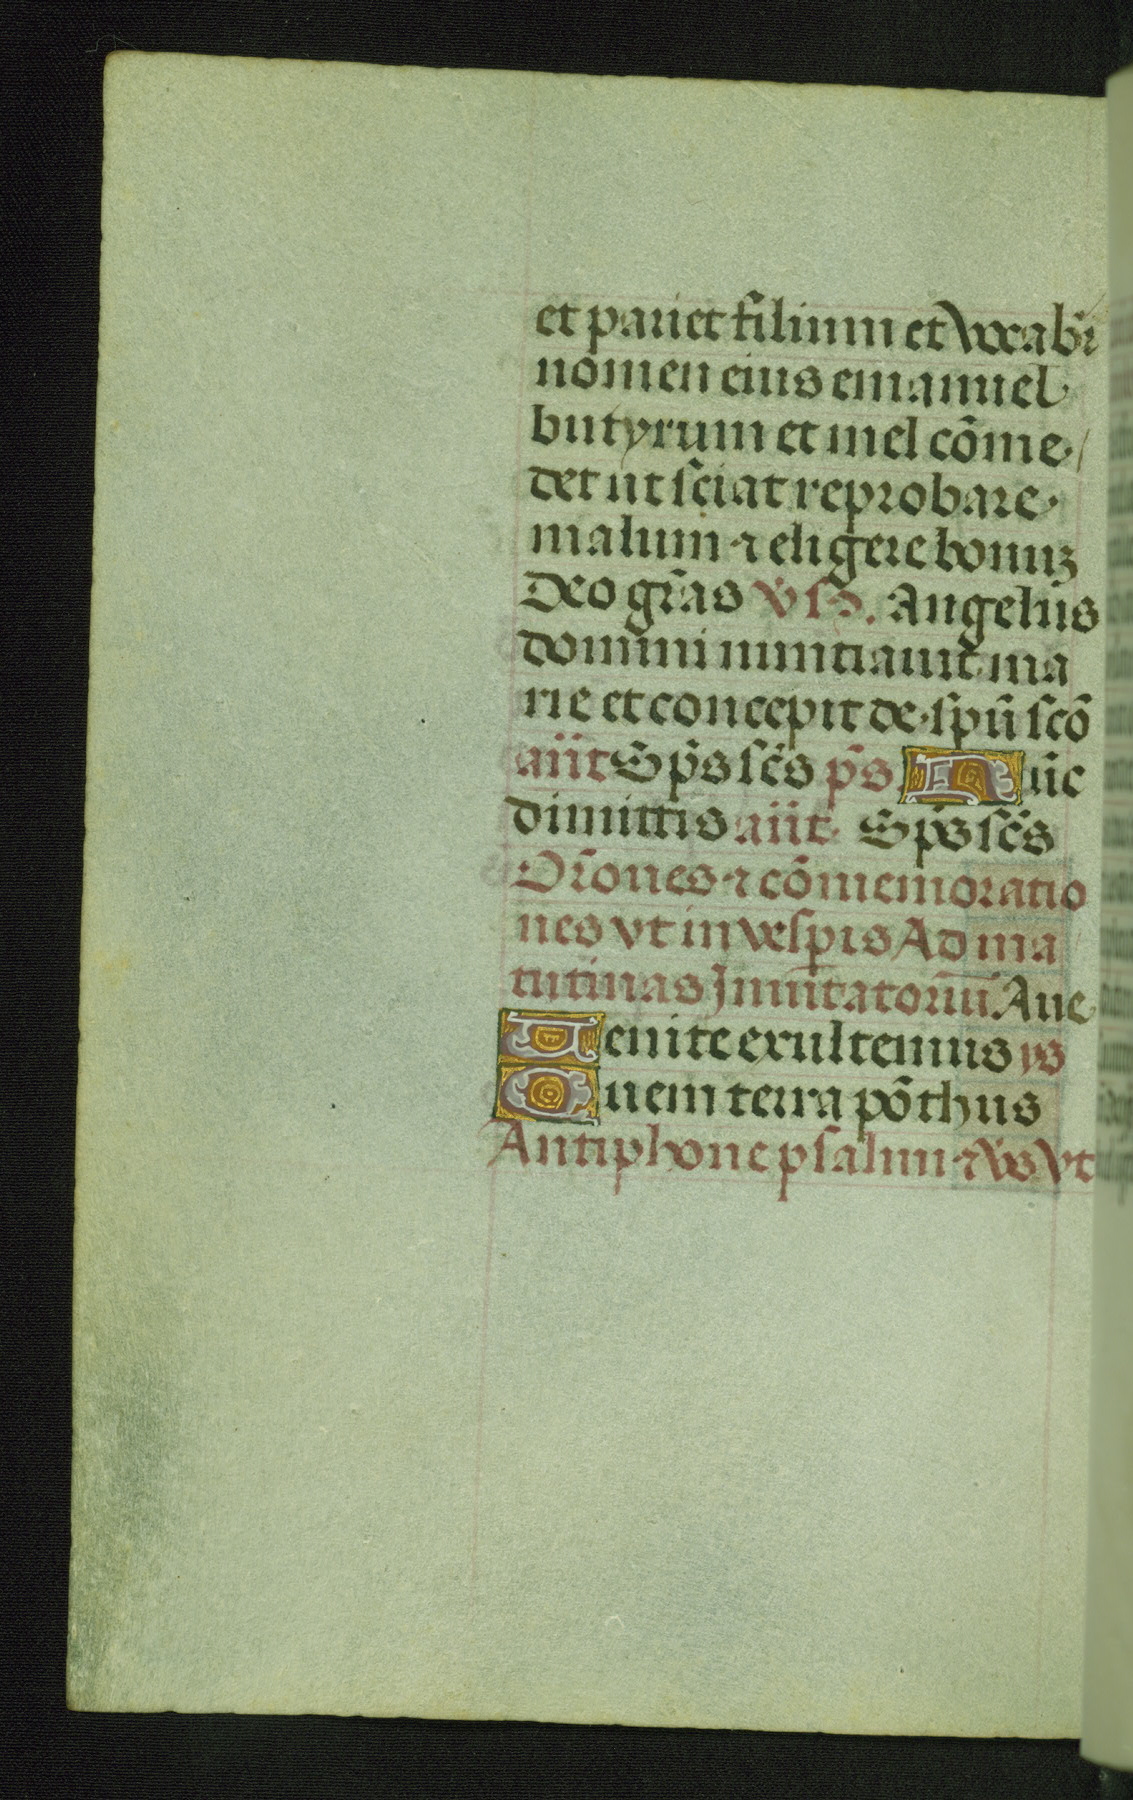 et pariet filium et vocabr̃
nomen eius emanuel
butyrum et mel cõme/
det ut sciat reprobare
malum ⁊ eligere bonuꝫ
Deo gr̃as v̈ sꝺ. Angelus
domini nuntiauit ma
rie et concepit de spũ scõ
añt Sp̃s sc̃s ps̃ Nũc
dimittis añt Sp̃s sc̃s
Or̃ones ⁊ cõmemoratio
nes vt in vesp̃is Ad ma
tutinas Inuitatoriũ Aue
Venite exultemus ys
Quem terra põthus
Antiphone psalmi ⁊ v̈s vt